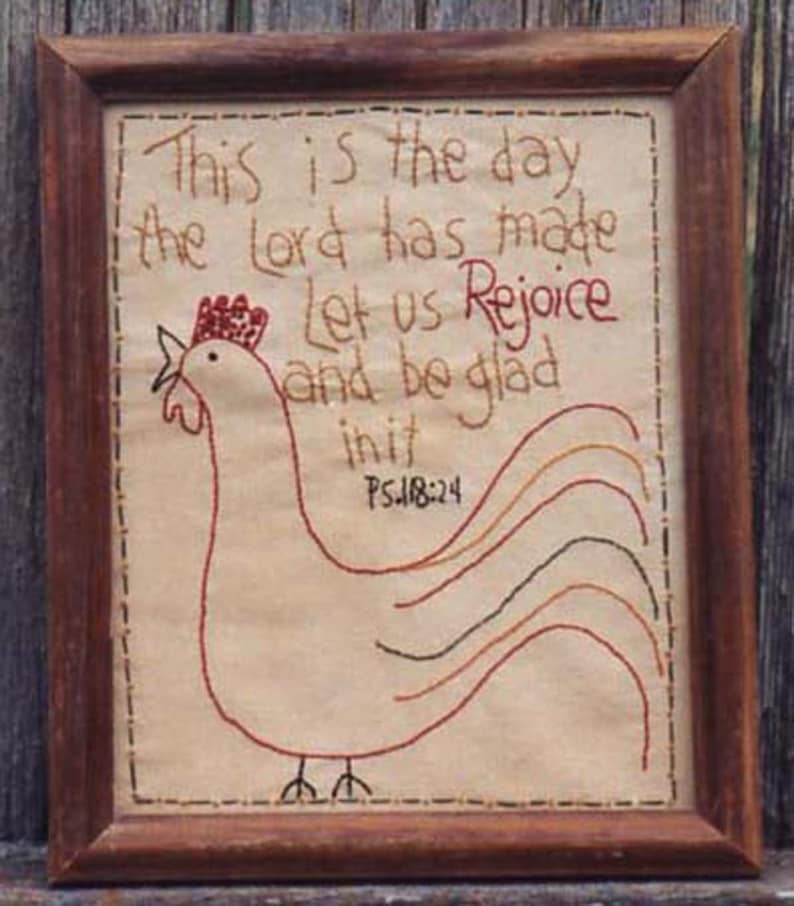 This is the day
the Lord has made
Let us Rejoice
and be glad
in it
Ps.118:24